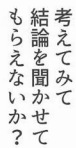 考えてみて
結論を聞かせて
もらえないか?